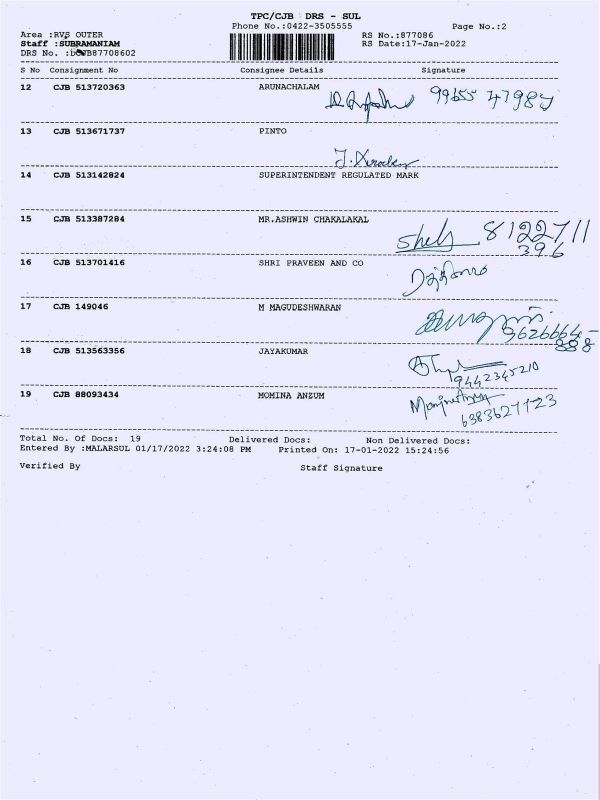 TPC/CJB DRS - SUL
Phone No.:0422-3505555
Page No.:2
Area :RVS OUTER
RS No.:877086
Staff :SUBRAMANIAM
RS Date:17-Jan-2022
DRS No. : 87708602
S No Consignment No Consignee Details Signature
12 CJB 513720363 ARUNACHALAM
99655 47987
13 CJB 513671737 PINTO
14 CJB 513142824 SUPERINTENDENT REGULATED MARK
15 CJB 513387284 MR.ASHWIN CHAKALAKAL
8122711
396
16 CJB 513701416 SHRI PRAVEEN AND CO
17 CJB 149046 M MAGUDESHWARAN
9626664-
888
18 CJB 513563356 JAYAKUMAR
9442345210
19 CJB 88093434 MOMINA ANZUM
6383627723
Total No. Of Docs: 19 Delivered Docs: Non Delivered Docs:
Entered By :MALARSUL 01/17/2022 3:24:08 PM Printed On: 17-01-2022 15:24:56
Verified By Staff Signature